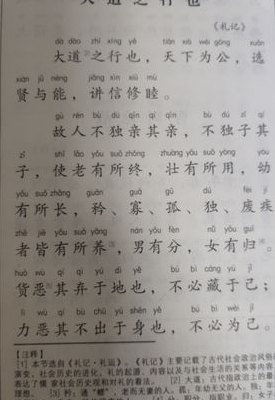 大道之行也
《礼记》
dà dào zhī xíng yě tiān xià wéi gōng xuǎn
大道之行也，天下为公，选
xián yǔ néng jiǎng xìn xiū mù
贤与能，讲信修睦。
gù rén bù dú qīn qí qīn bù dú zǐ qí
故人不独亲其亲，不独子其
zǐ shǐ lǎo yǒu suǒ zhōng zhuàng yǒu suǒ yòng yòu
子，使老有所终，壮有所用，幼
yǒu suǒ zhǎng guān guǎ gū dú fèi jí
有所长，矜、寡、孤、独、废疾
zhě jiē yǒu suǒ yǎng nán yǒu fèn nǚ yǒu guī
者皆有所养，男有分，女有归。
huò wù qí qì yú dì yě bù bì cáng yú jǐ
货恶其弃于地也，不必藏于己；
lì wù qí bù chū yú shēn yě bù bì wèi jǐ
力恶其不出于身也，不必为己。
【注释】
[1] 本节选自《礼记·礼运》。《礼记》主要记载了古代社会政治风俗的
演变、社会历史的进化、礼的起源、内容以及与社会生活的关系等内容
表达了儒家社会历史观和对礼的看法。 [2] 大道：古代指政治上的最
理想。 [3] 矜：通“鳏”，老而无妻的人。孤：年幼无父的人。